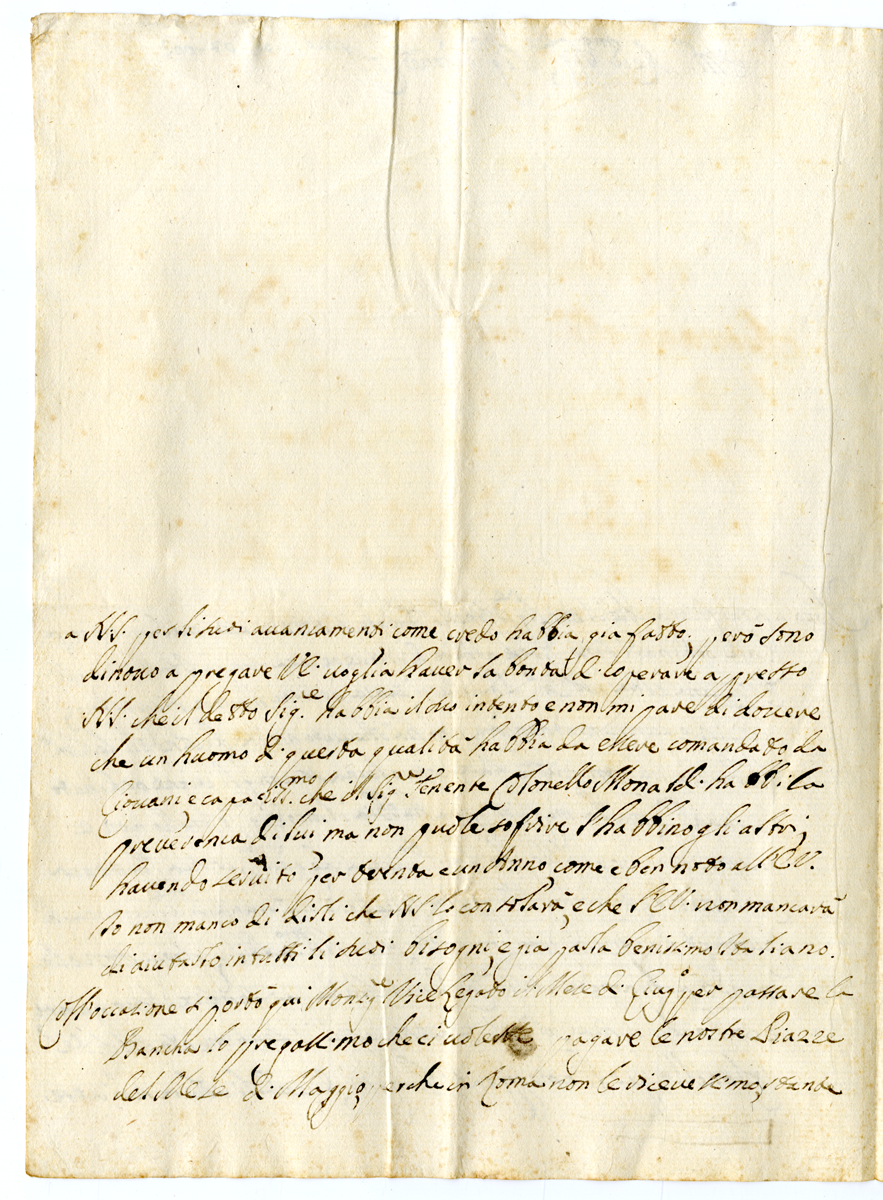 a N.S. per li suoi avanzamenti come credo habbia gia fatto, però sono
di novo a pregare V.E. voglia haver la bontà d'operare apresso
N.S. che il detto Sig.re habbia il suo intento e non mi pare di dovere
che un huomo di questa qualità habbia da essere comandato da
Giovani e capacis.mo che il Sig.r Tenente Colonello Monaldi habbi la
preverenza di lui ma non puole sofrire l'habbino gli altri,
havendo servito per trenta e un Anno come e ben noto all'E.V.
Io non manco di dirli che N.S. lo consolarà, e che l'E.V. non mancarà
di aiutarlo in tutti li suoi bisogni, e gia parla benissimo Italiano.
Coll'occazione si portò qui Monsig.re Vice Legato il Mese di Giug.o per passare la
Bancha lo pregass.mo che ci volesse pagare le nostre Piazze
del Mese di Maggio, perche in Roma non le ricevessemo, stante